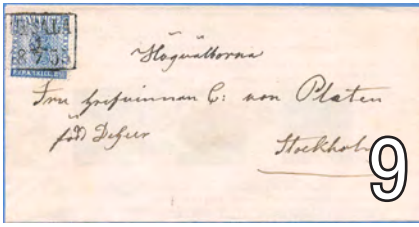 Högvälborna
Fru Grefvinnan C: von Platen
född DeGeer
Stockholm
9